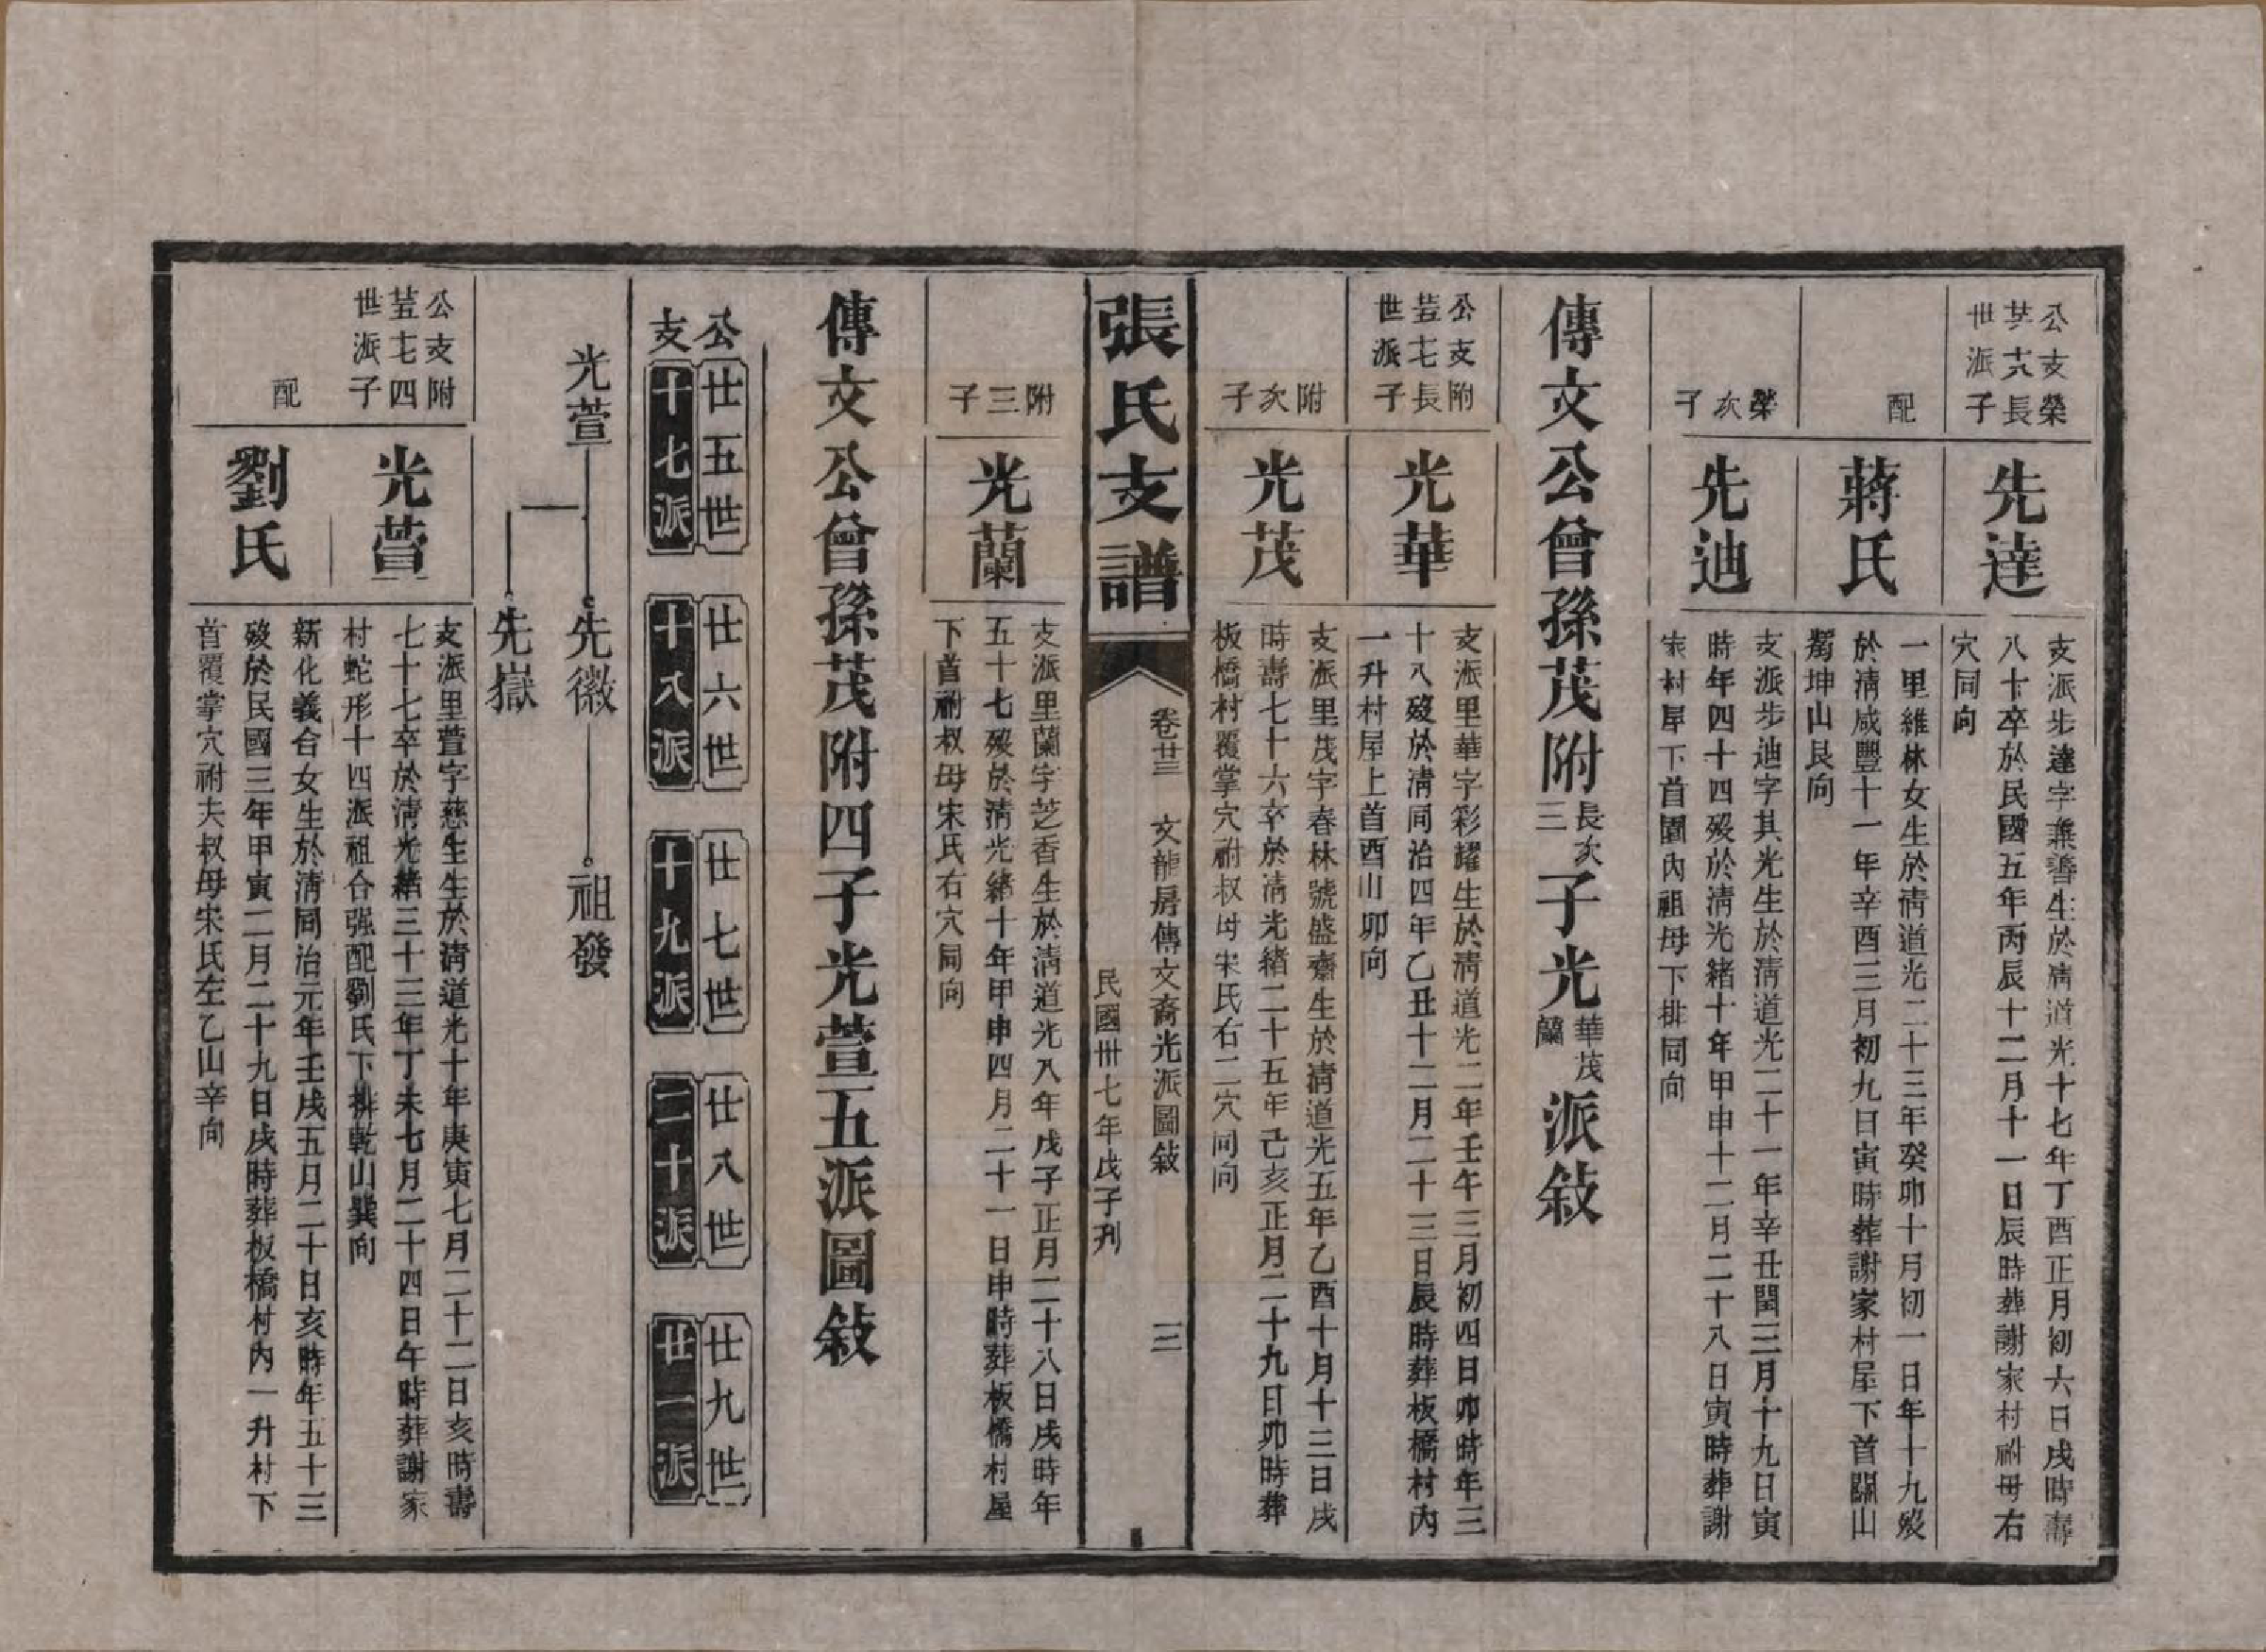 公支榮
廿六
十八長
世派子
先達
支派步達字兼善生於淸道光十七年丁酉正月初六日戌時壽
八十卒於民國五年丙辰十二月十一日辰時葬謝家村祔母右
穴同向
配
蔣氏
一里維林女生於淸道光二十三年癸卯十月初一日年十九歿
於淸咸豐十一年辛酉三月初九日寅時葬謝家村屋下首關山
坤山艮向
榮次子
先迪
支派步迪字其光生於淸道光二十一年辛丑閏三月十九日寅
時年四十四歿於淸光緒十年甲申十二月二十八日寅時葬謝
家村屋下首園內祖母下排同向
傳文公曾孫茂附長次三子光華茂蘭派敍
公支附
廿五
十七長
世派子
光華
支派里華字彩耀生於淸道光二年壬午三月初四日卯時年三
十八歿於淸同治四年乙丑十二月二十三日辰時葬板橋村內
一升村屋上首酉山卯向
附次子
光茂
支派里茂字春林號盛齋生於淸道光五年乙酉十月十三日戌
時壽七十六卒於淸光緒二十五年己亥正月二十九日卯時葬
板橋村覆掌穴祔叔母宋氏右二穴同向
張氏支譜
卷廿三 文龍房傳文裔光派圖敍 三
民國卅七年戊子刋
附三子
光蘭
支派里蘭字芝香生於淸道光八年戊子正月二十八日戌時年
五十七歿於淸光緒十年甲申四月二十一日申時葬板橋村屋
下首祔叔母宋氏右穴同向
傳文公曾孫茂附四子光萱五派圖敍
公 廿五世 廿六世 廿七世 廿八世 廿九世
支 十七派 十八派 十九派 二十派 廿一派
光萱 先徽 祖發
先嶽
公支附
廿五
十七四
世派子
光萱
支派里萱字慈生生於淸道光十年庚寅七月二十二日亥時壽
七十七卒於淸光緒三十三年丁未七月二十四日午時葬謝家
村蛇形十四派祖合强配劉氏下排乾山巽向
配
劉氏
新化義合女生於淸同治元年壬戌五月二十日亥時年五十三
歿於民國三年甲寅二月二十九日戌時葬板橋村內一升村下
首覆掌穴祔夫叔母宋氏左乙山辛向